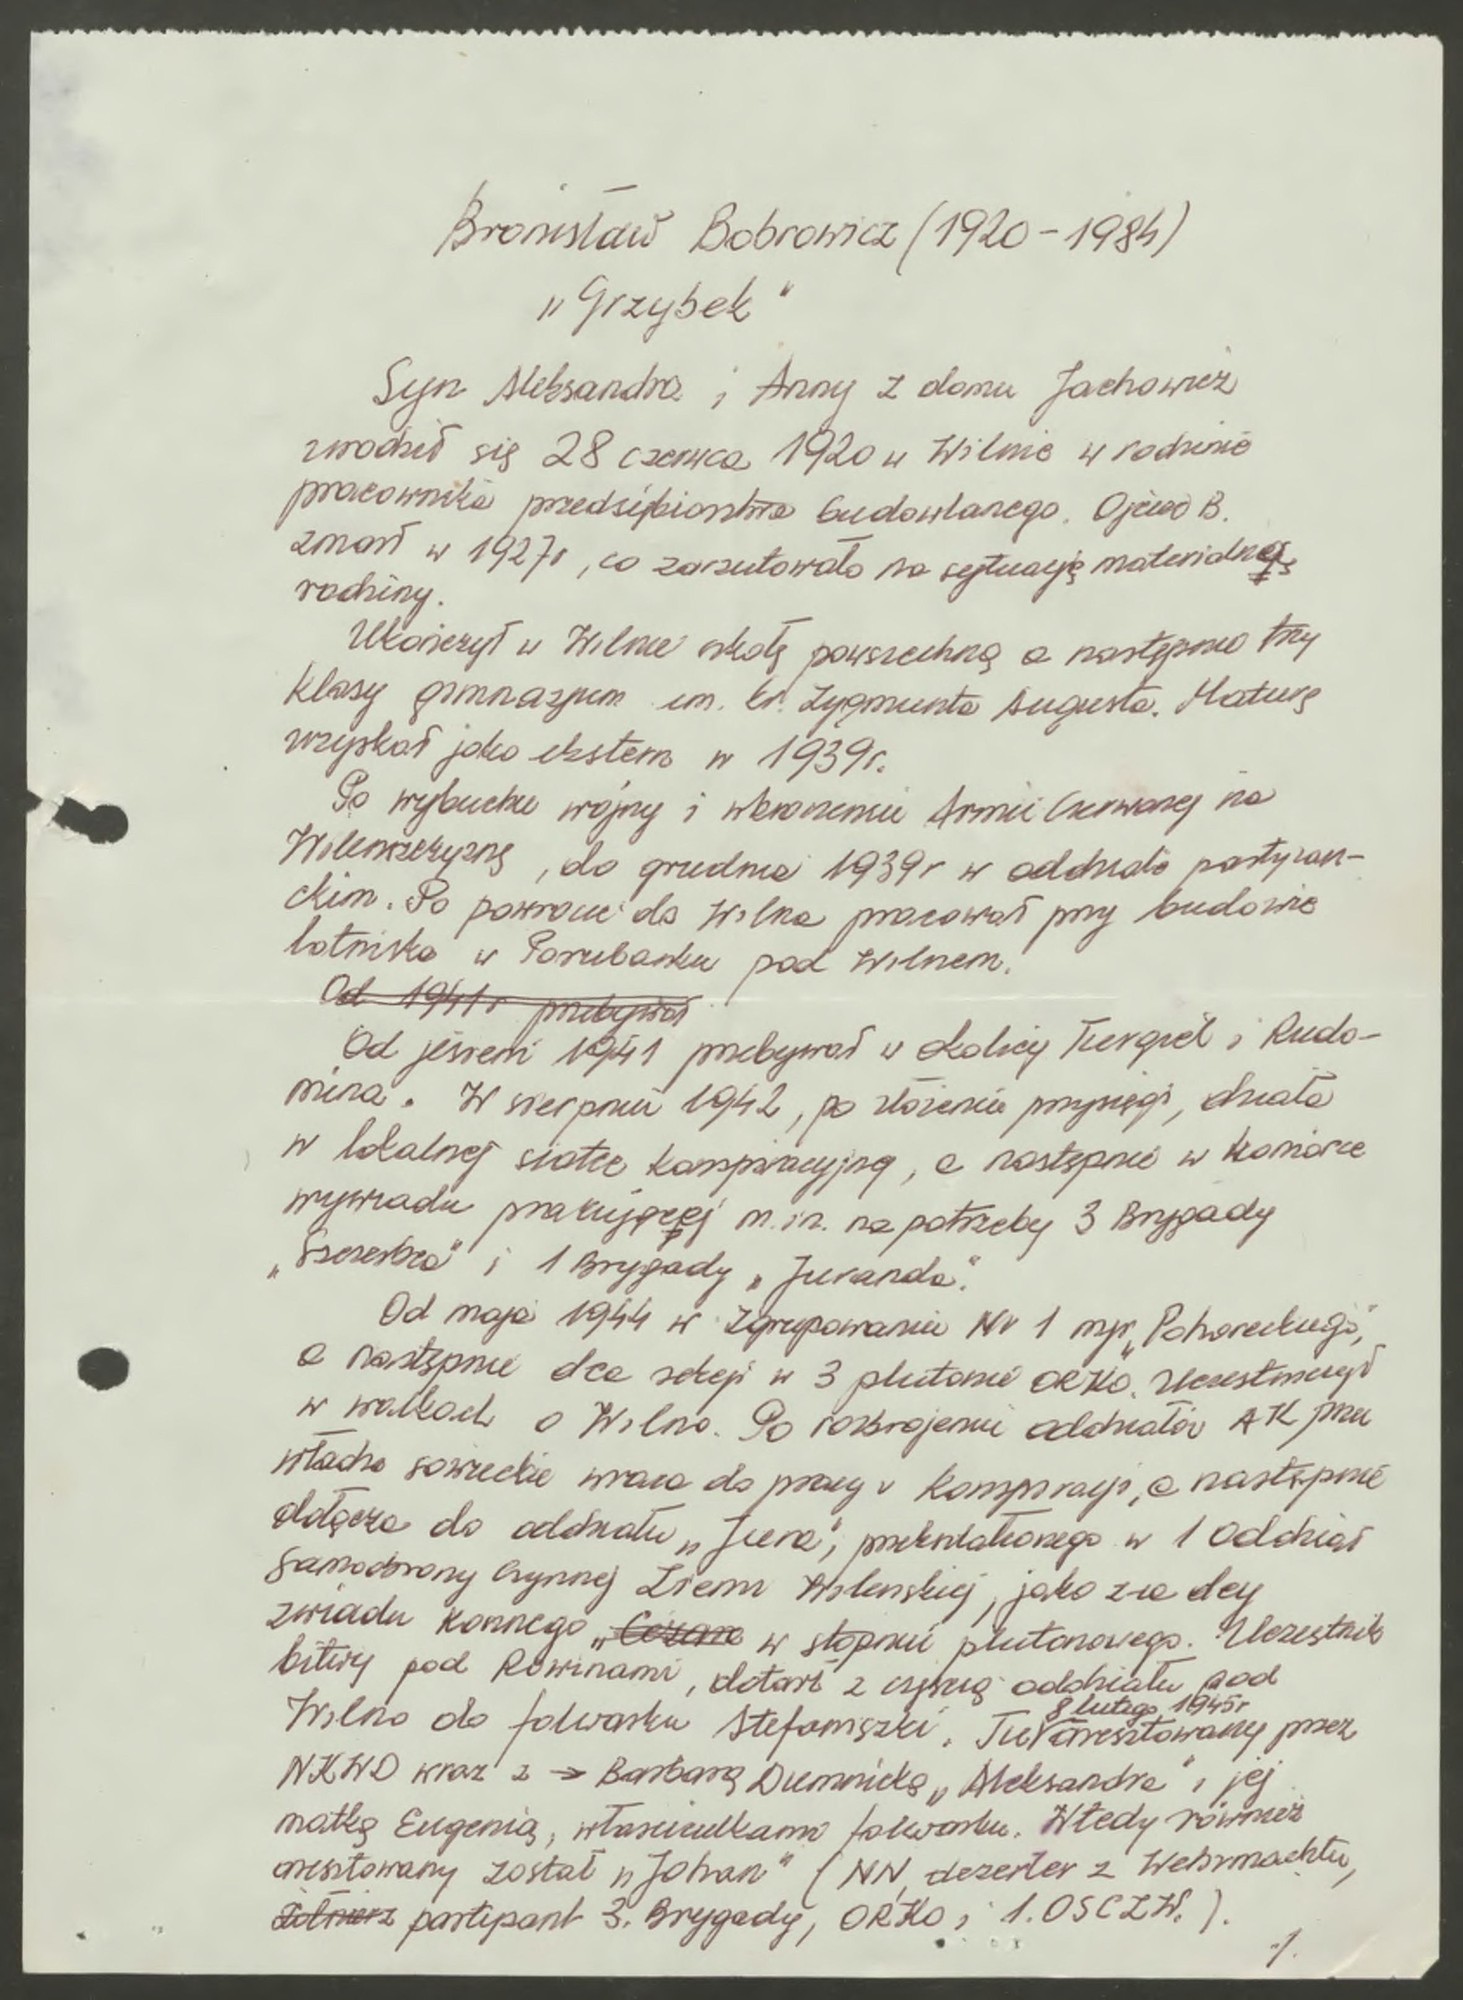 Bronisław Bobrowicz (1920-1984)
„Grzybek"
Syn Aleksandra i Anny z domu Jachowicz
urodził się 28 czerwca 1920 w Wilnie w rodzinie
pracownika przedsiębiorstwa budowlanego. Ojciec B.
zmarł w 1927r, co zarzutowało na sytuację materialną
rodziny.
Ukończył w Wilnie szkołę powszechną a następnie trzy
klasy gimnazjum im. kr. Zygmunta Augusta. Maturę
uzyskał jako ekstern w 1939r.
Po wybuchu wojny i wkroczeniu Armii Czerwonej na
Wileńszczyznę, do grudnia 1939r w oddziale partyzan-
ckim. Po powrocie do Wilna pracował przy budowie
lotniska w Porubanku pod Wilnem.
Od 1941r przebywał
Od jesieni 1941 przebywał w okolicy Turgiel i Rudo-
mina. W sierpniu 1942, po złożeniu przysięgi, działa
w lokalnej siatce konspiracyjnej, a następnie w komórce
wywiadu pracującej m.in. na potrzeby 3 Brygady
„Szczerbca" i 1 Brygady „Juranda".
Od maja 1944 w Zgrupowaniu Nr 1 mjr „Pohoreckiego",
a następnie dca sekcji w 3 plutonie ORKO. Uczestniczył
w walkach o Wilno. Po rozbrojeniu oddziałów AK przez
władze sowieckie wraca do pracy w konspiracji, a następnie
dołącza do oddziału „Jura", przekształconego w 1 Oddział
Samoobrony Czynnej Ziemi Wileńskiej, jako z-ca dcy
zwiadu konnego w stopniu plutonowego. Uczestnik
bitwy pod Rowinami, dotarł z częścią oddziału pod
Wilno do folwarku Stefaniszki. Tu 8 lutego 1945r aresztowany przez
NKWD wraz z → Barbarą Dumnicką „Aleksandra" i jej
matką Eugenią, właścicielkami folwarku. Wtedy również
aresztowany został „Johan" (NN, dezerter z Wehrmachtu,
żołnierz partyzant 3. Brygady, ORKO i 1. OSCZW.).
-/.